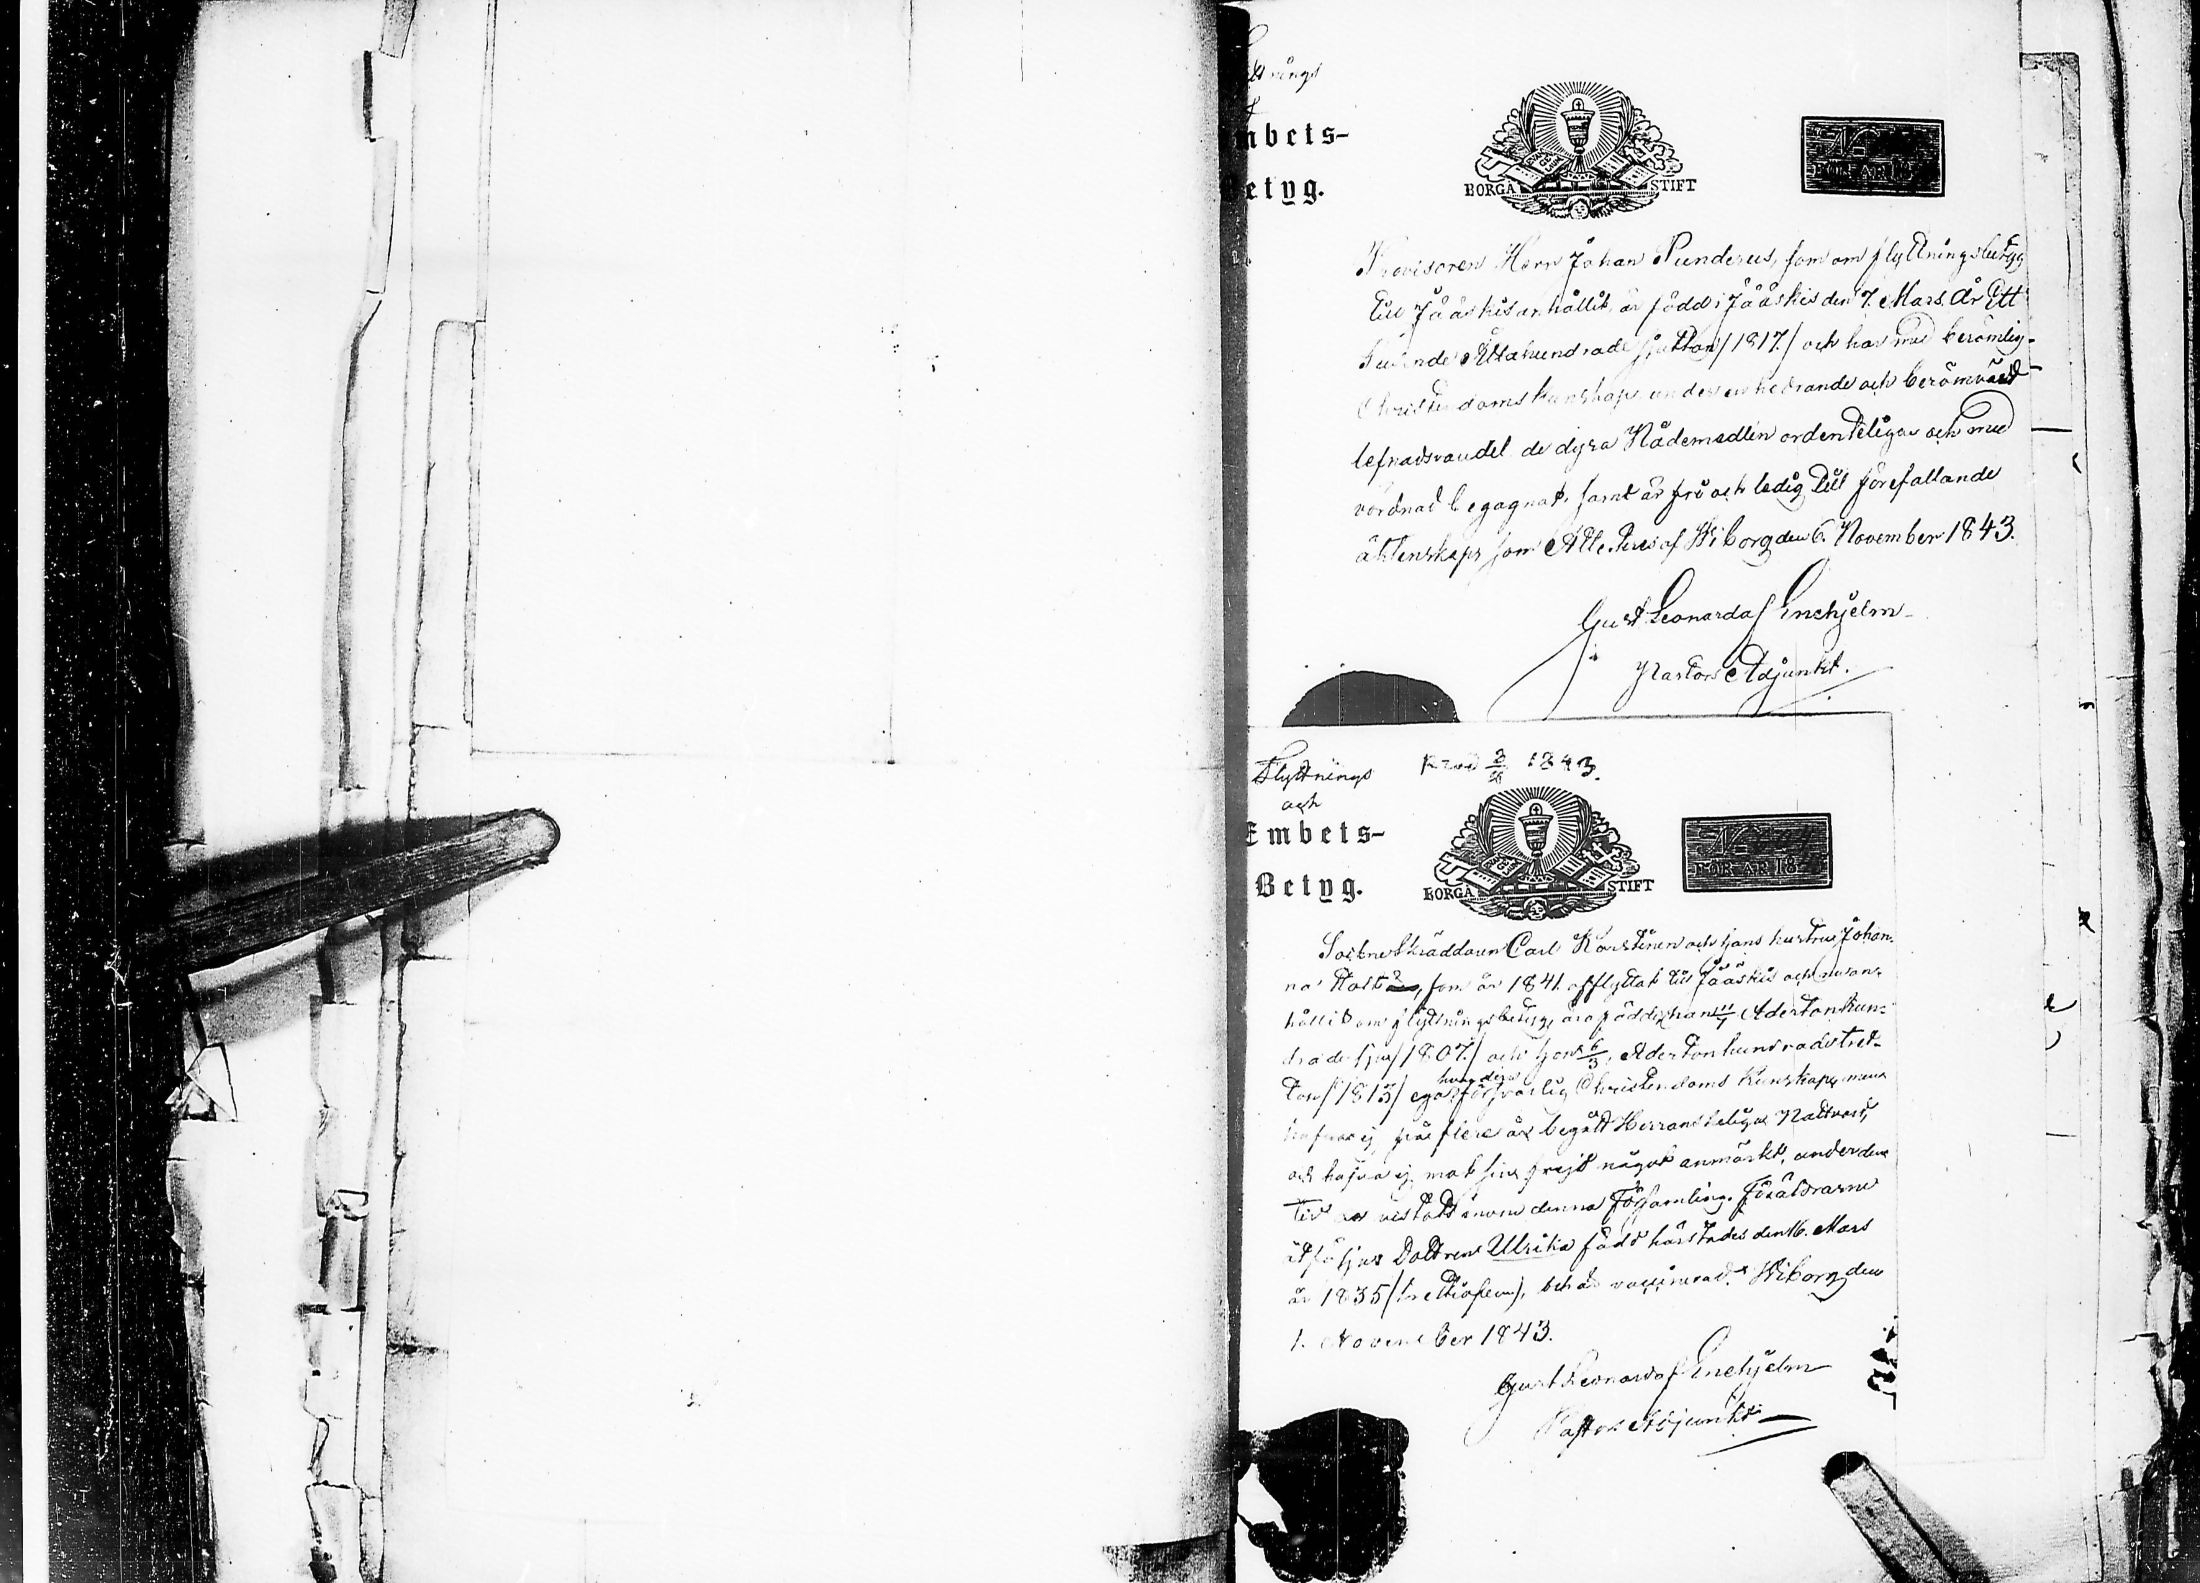 Flyttnings
mbets-
etyg.
BORGÅ STIFT
FÖR ÅR 18
Provisoren Herr Johan Punderus, som om flyttningsbetyg
till Jääskis anhållit, är född i Jääskis den 7. Mars År Ett
Tusende Åttahundrade sjutton /1817./ och har med berömlig
Christendoms kunskap under en hedrande och berömvärd
lefnadsvandel de dyra Nådemedlen ordenteligen och med
vördnad begagnat, samt är fri och ledig till förefallande
äktenskap, som Attesteras af Wiborg den 6. November 1843.
Gust Leonard af Enehjelm
Pastors Adjunkt.
Flyttnings
och
1843.
Embets-
Betyg.
BORGÅ STIFT
FÖR ÅR 18
Sockneskräddaren Carl Karstinen och hans hustru Johan-
na, som år 1841. afflyttat till Jääskis och nu an-
hållit om flyttningsbetyg, äro födde, han Adertonhun-
drade sju /1807./ och hon 6/3 Adertonhundrade tret-
ton /1813/ ega försvarlig Christendoms kunskap, men
hafva ej på flere år begått Herrans heliga Nattvard,
och hafva ej mot sin frejd något anmärkt, under den
tid de vistats inom denna Församling. Föräldrarne
åtföljer Dottren Ulrika född härstädes den 16. Mars
år 1835 /trettiofem/, och är vaccinerad. Wiborg den
1. November 1843.
Gust Leonard af Enehjelm
Pastors Adjunkt